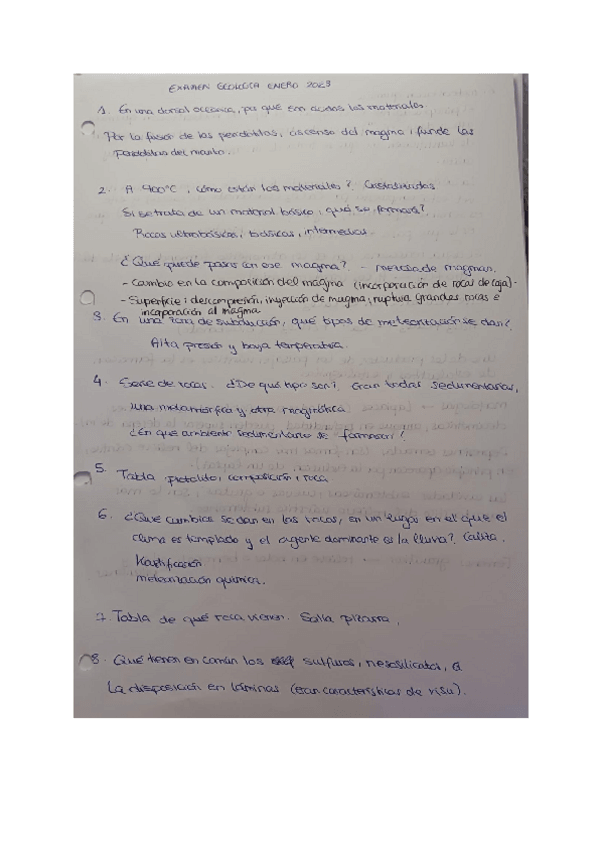 EXAMEN GEOLOGÍA ENERO 2023
1. En una dorsal oceánica, por qué son ácidos los materiales
Por la fusión de las peridotitas, ascenso del magma i funde las
Peridotitas del manto.
2. A 400°C, ¿cómo están los materiales? Cristalizados
Si se trata de un material básico, qué se formará?
Rocas ultrabásicas, básicas, intermedias.
¿Qué puede pasar con ese magma? - mezcla de magmas.
- Cambio en la composición del magma (incorporación de rocas de caja) -
- Superficie: descompresión, inyección de magma, ruptura grandes rocas e
incorporación al magma
3. En una zona de subducción, qué tipos de meteorización se dan?
Alta presión y baja temperatura.
4. Serie de rocas. ¿De qué tipo son? Eran todas sedimentarias,
una metamórfica y otra magmática.
¿En qué ambiente sedimentario se formaron?
5. Tabla protolito, composición, roca
6. ¿Qué cambios se dan en las rocas, en un lugar en el que el
clima es templado y el agente dominante es la lluvia? Caliza.
Karstificación
meteorización química.
7. Tabla de qué roca vienen. Salía pizarra.
8. Qué tienen en común los sulfuros, nesosilicatos, o
la disposición en láminas (eran características de visu).